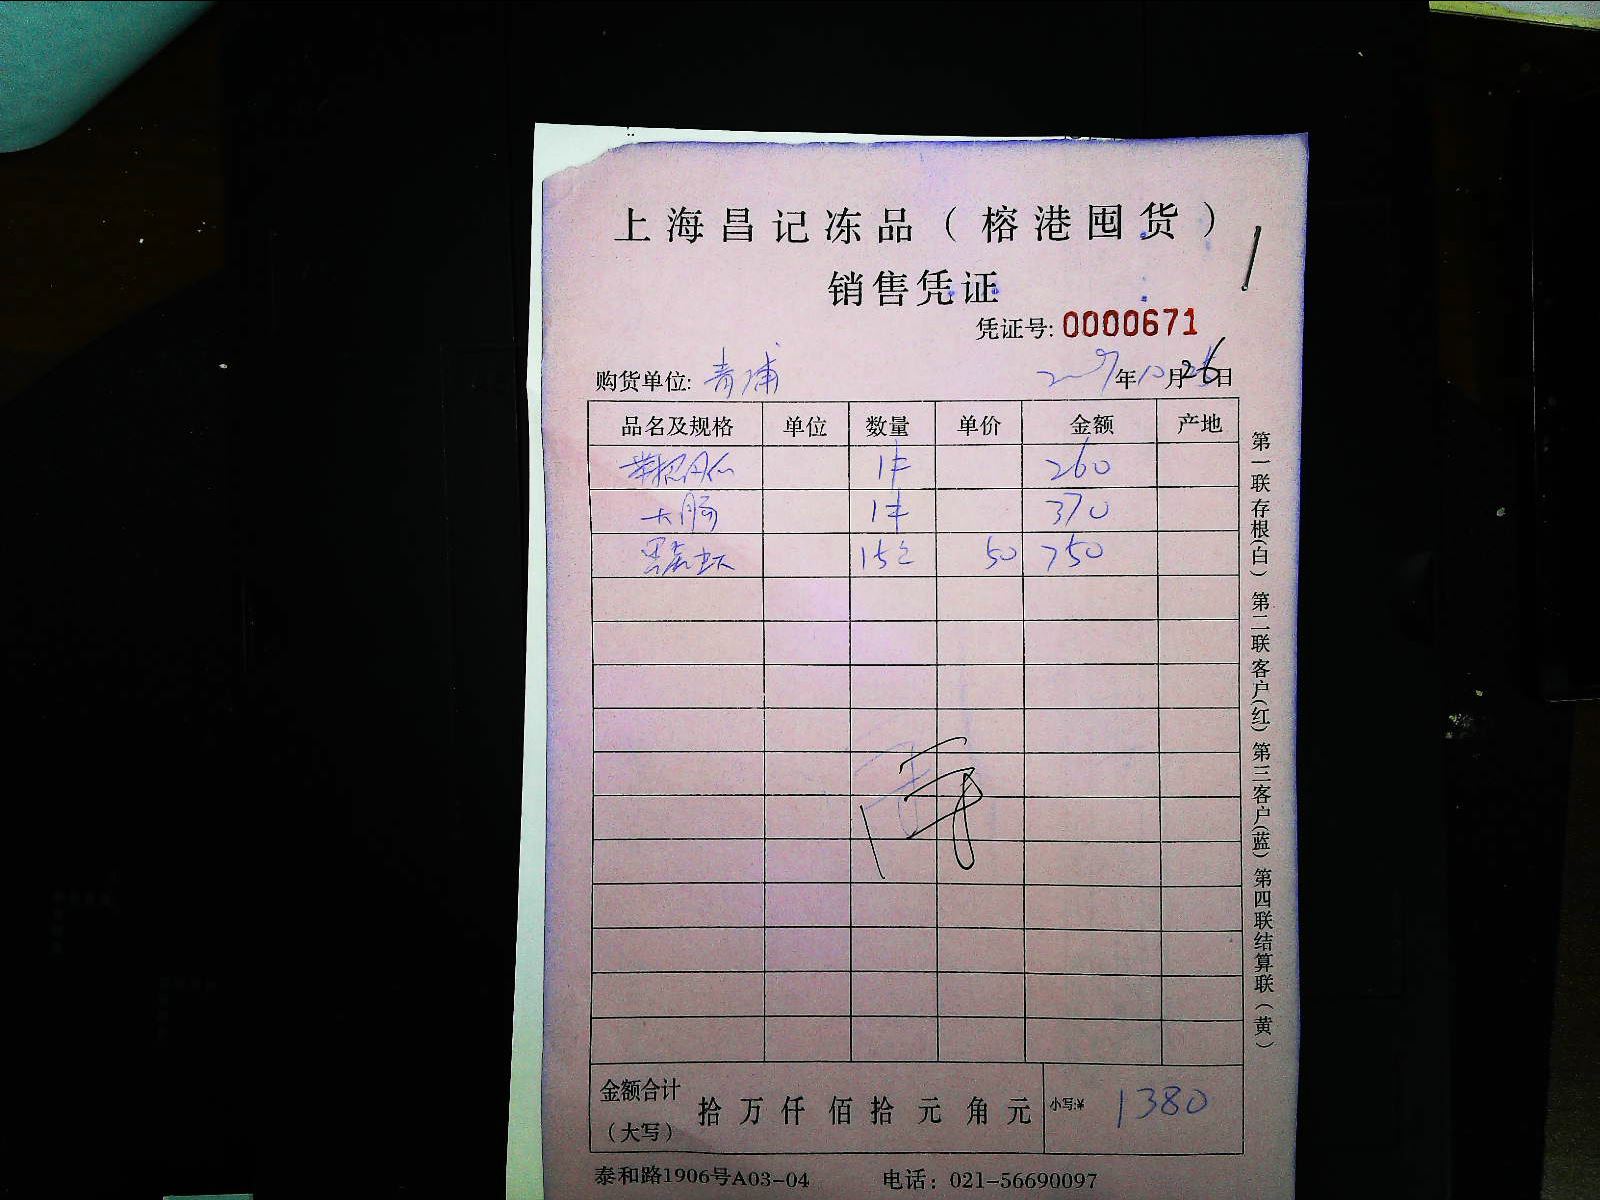 上海昌记冻品（榕港囤货）
销售凭证
凭证号: 0000671
购货单位: 青浦 年10月26日
品名及规格 单位 数量 单价 金额 产地
1件 260
大肠 1件 370
黑虎虾 15 50 750
金额合计（大写） 拾万仟佰拾元角元 小写:¥ 1380
泰和路1906号A03-04 电话：021-56690097
第一联存根(白) 第二联客户(红) 第三客户(蓝) 第四联结算联(黄)